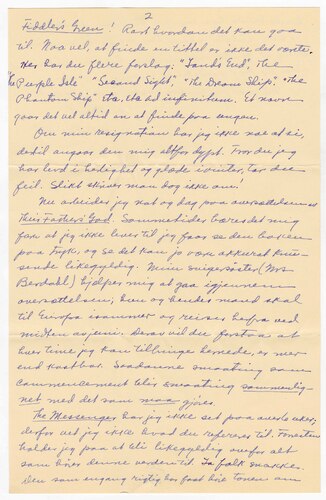 2
Fiddler's Green! Rart hvordan det kan gaa
til. Naa vel, at finde en tittel er ikke det verste.
Her har du flere forslag, "Land's End", "The
Purple Isle" "Second Sight", "The Dream Ship". "The
Phantom Ship" etc. etc ad infinitum. Et navn
gaar det vel altid an at finde paa engang.
Om min resignation har jeg ikke noe at si,
dertil angaar den mig altfor dypt. Tror du jeg
har levd i hedighet og glæde i vinter, tar du
feil. Slikt skriver man dog ikke om!
Nu arbeider jeg nat og dag paa oversættelsen av
Their Fathers' God. Sommetider bæres det mig
for at jeg ikke lever til jeg faar se den boken
paa tryk, og se det kan jo være akkurat knu-
sende likegyldig. Min svigersøster (Mrs
Berdahl) hjælper mig at gaa igjennem
oversættelsen, hun og hendes mand skal
til Europa isommer og reiser herfra ved
midten av juni. Derav vil du forstaa at
hver time jeg kan tilbringe hernede, er mer
end kostbar. Saadanne smaating som
commencement blir smaating sammenlig-
net med det som maa gjøres.
The Messenger har jeg ikke set paa over to uker,
derfor vet jeg ikke hvad du refererer til. Forresten
holder jeg paa at bli likegyldig overfor alt
som hører denne verden til. La folk snakke.
Den som engang rigtig har faat høre tonen om